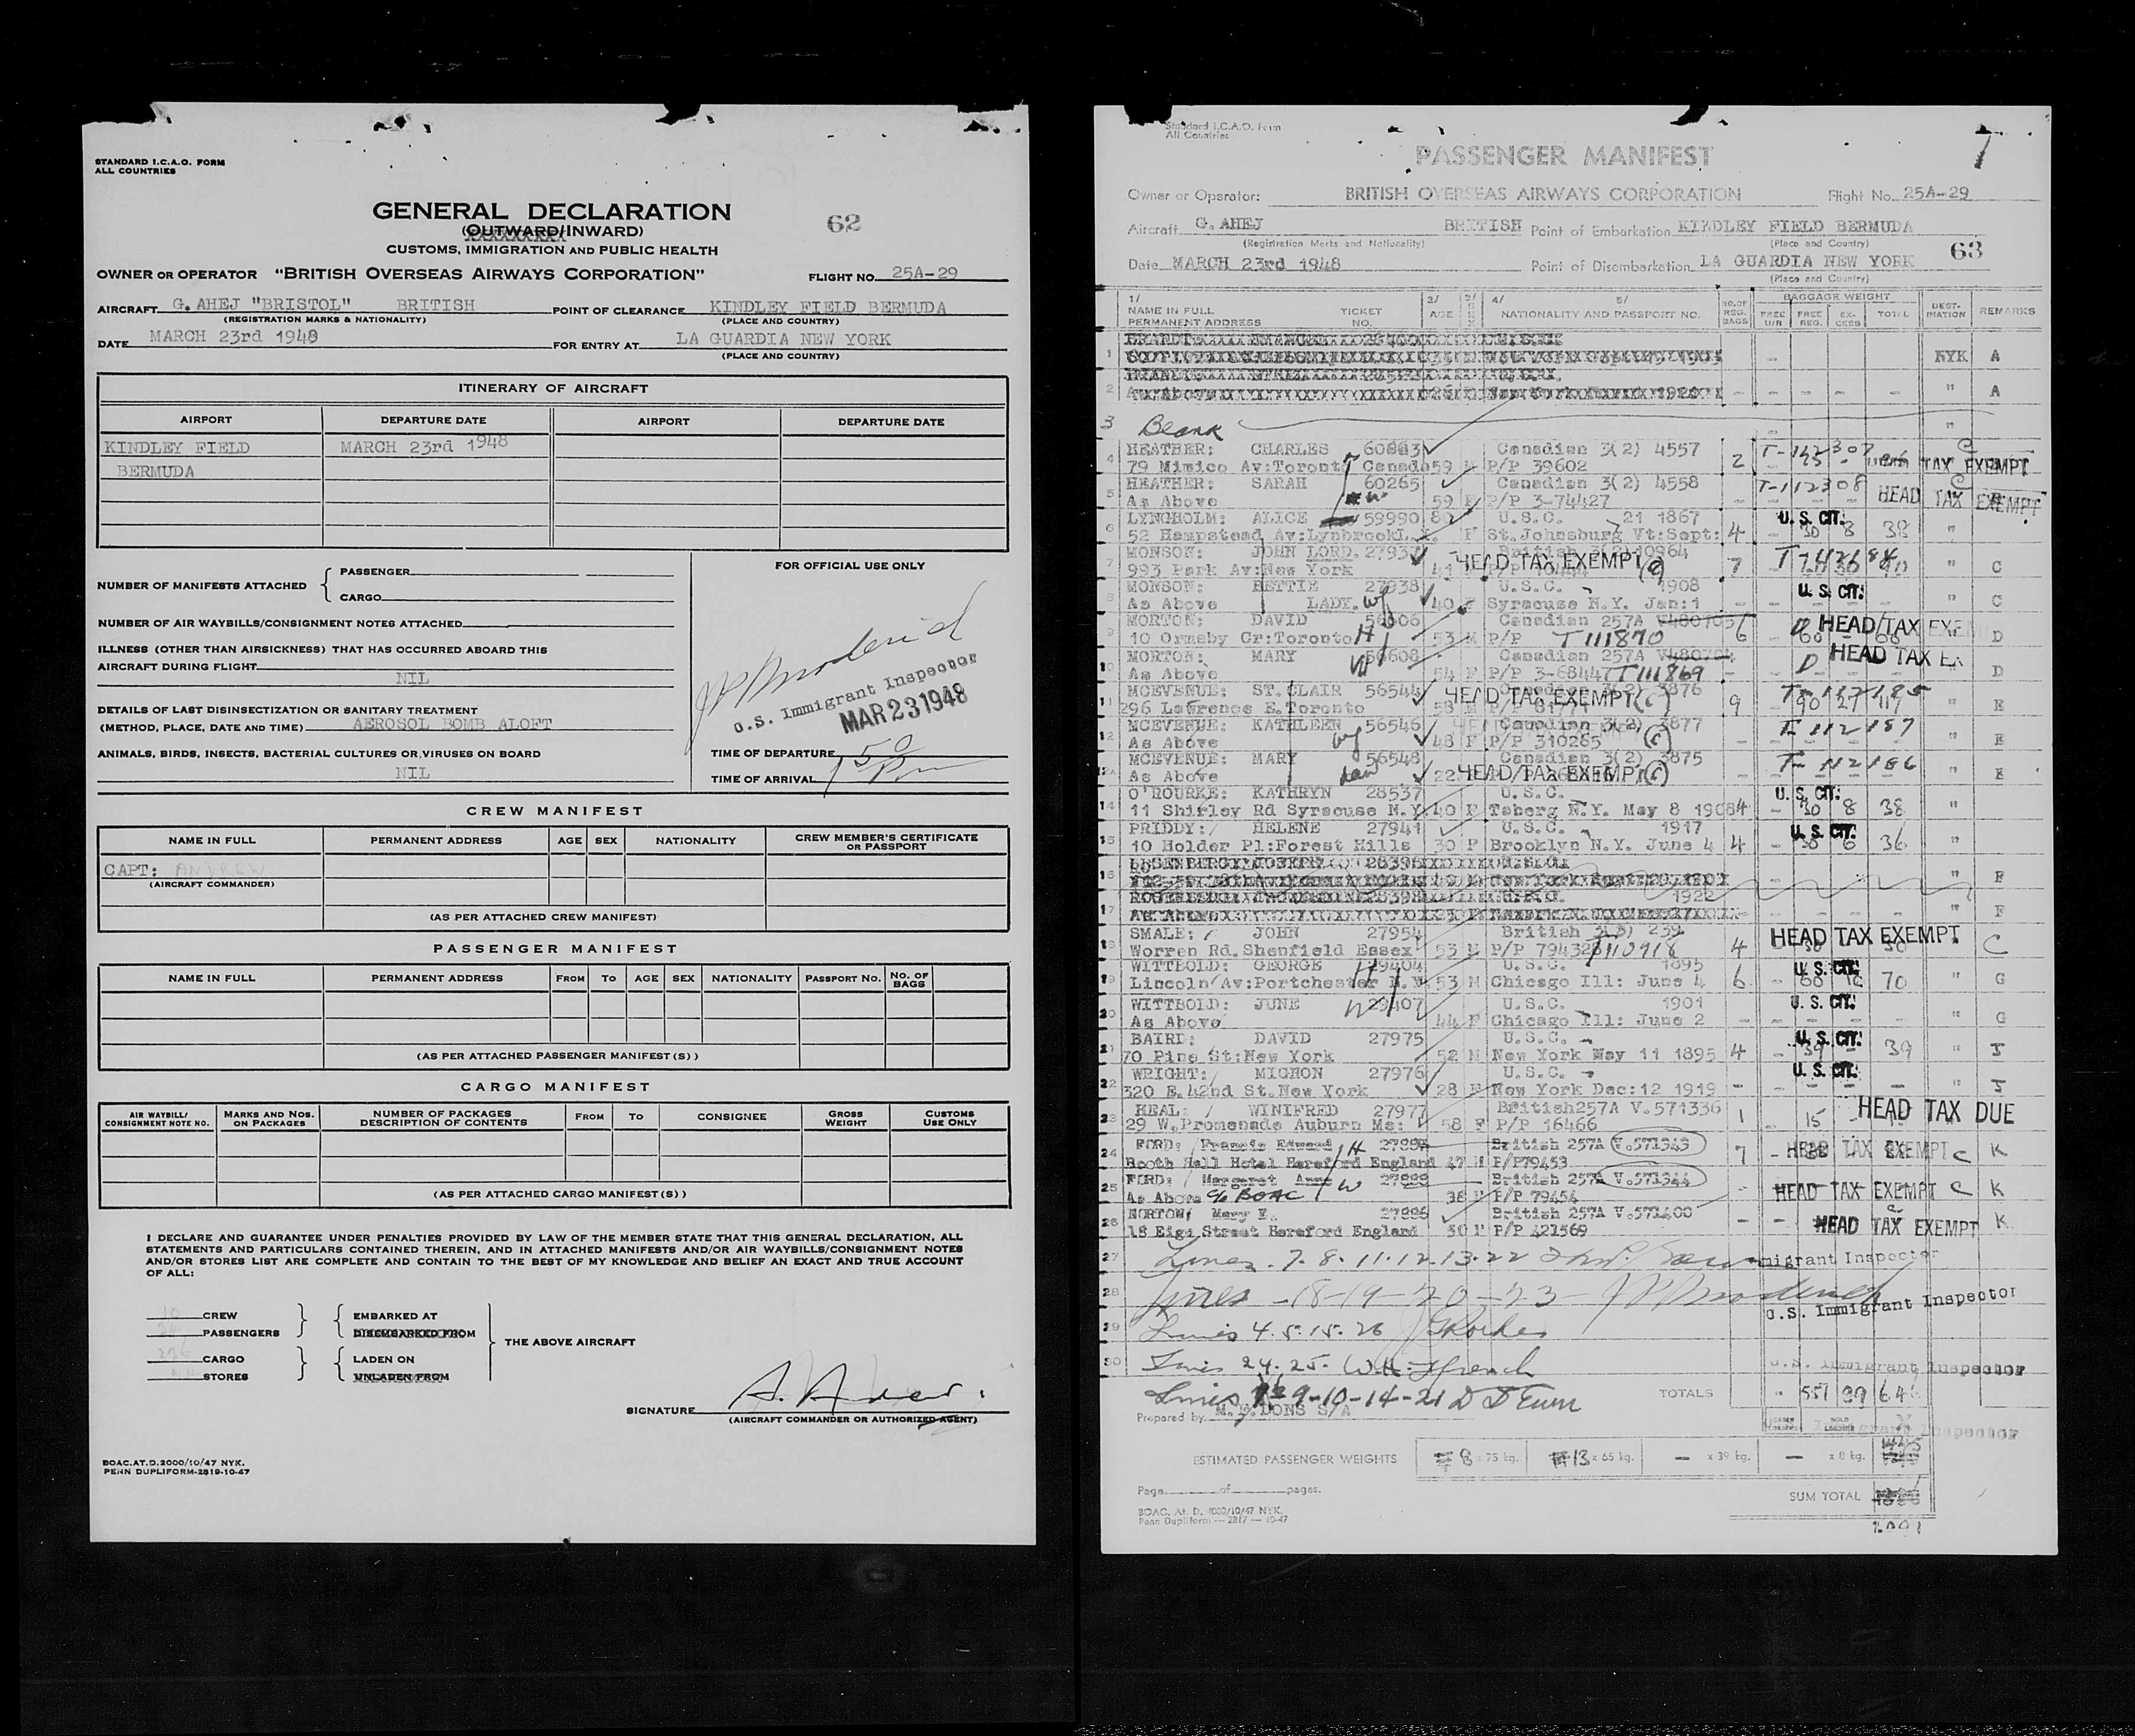 STANDARD I.C.A.O. FORM
ALL COUNTRIES
GENERAL DECLARATION
62
(OUTWARD/INWARD)
CUSTOMS, IMMIGRATION AND PUBLIC HEALTH
OWNER OR OPERATOR "BRITISH OVERSEAS AIRWAYS CORPORATION" FLIGHT NO. 25A-29
AIRCRAFT G. AHEJ "BRISTOL" BRITISH POINT OF CLEARANCE KINDLEY FIELD BERMUDA
(REGISTRATION MARKS & NATIONALITY) (PLACE AND COUNTRY)
DATE MARCH 23rd 1948 FOR ENTRY AT LA GUARDIA NEW YORK
(PLACE AND COUNTRY)
ITINERARY OF AIRCRAFT
AIRPORT DEPARTURE DATE AIRPORT DEPARTURE DATE
KINDLEY FIELD MARCH 23rd 1948
BERMUDA
NUMBER OF MANIFESTS ATTACHED PASSENGER
CARGO
NUMBER OF AIR WAYBILLS/CONSIGNMENT NOTES ATTACHED
ILLNESS (OTHER THAN AIRSICKNESS) THAT HAS OCCURRED ABOARD THIS
AIRCRAFT DURING FLIGHT
NIL
DETAILS OF LAST DISINSECTIZATION OR SANITARY TREATMENT
(METHOD, PLACE, DATE AND TIME) AEROSOL BOMB ALOFT
ANIMALS, BIRDS, INSECTS, BACTERIAL CULTURES OR VIRUSES ON BOARD
NIL
FOR OFFICIAL USE ONLY
U.S. Immigrant Inspector
MAR 23 1948
TIME OF DEPARTURE
TIME OF ARRIVAL 1 50 Pm
CREW MANIFEST
NAME IN FULL PERMANENT ADDRESS AGE SEX NATIONALITY CREW MEMBER'S CERTIFICATE OR PASSPORT
CAPT: ANDREW
(AIRCRAFT COMMANDER)
(AS PER ATTACHED CREW MANIFEST)
PASSENGER MANIFEST
NAME IN FULL PERMANENT ADDRESS FROM TO AGE SEX NATIONALITY PASSPORT NO. NO. OF BAGS
(AS PER ATTACHED PASSENGER MANIFEST(S))
CARGO MANIFEST
AIR WAYBILL/ CONSIGNMENT NOTE NO. MARKS AND NOS. ON PACKAGES NUMBER OF PACKAGES DESCRIPTION OF CONTENTS FROM TO CONSIGNEE GROSS WEIGHT CUSTOMS USE ONLY
(AS PER ATTACHED CARGO MANIFEST(S))
I DECLARE AND GUARANTEE UNDER PENALTIES PROVIDED BY LAW OF THE MEMBER STATE THAT THIS GENERAL DECLARATION, ALL
STATEMENTS AND PARTICULARS CONTAINED THEREIN, AND IN ATTACHED MANIFESTS AND/OR AIR WAYBILLS/CONSIGNMENT NOTES
AND/OR STORES LIST ARE COMPLETE AND CONTAIN TO THE BEST OF MY KNOWLEDGE AND BELIEF AN EXACT AND TRUE ACCOUNT
OF ALL:
CREW EMBARKED AT
PASSENGERS DISEMBARKED FROM
THE ABOVE AIRCRAFT
CARGO LADEN ON
STORES UNLADEN FROM
SIGNATURE
(AIRCRAFT COMMANDER OR AUTHORIZED AGENT)
BOAC.AT.D.2000/10/47 NYK.
PENN DUPLIFORM-2819-10-47
Standard I.C.A.O. Form
All Countries
PASSENGER MANIFEST
Owner or Operator: BRITISH OVERSEAS AIRWAYS CORPORATION Flight No. 25A-29
Aircraft G. AHEJ BRITISH Point of Embarkation KINDLEY FIELD BERMUDA
(Registration Marks and Nationality) (Place and Country)
63
Date MARCH 23rd 1948 Point of Disembarkation LA GUARDIA NEW YORK
(Place and Country)
1/ 2/ 3/ 4/ 5/ NO. OF REG. BAGS BAGGAGE WEIGHT DESTINATION REMARKS
NAME IN FULL TICKET AGE SEX NATIONALITY AND PASSPORT NO. FREE U/R FREE REG. EXCESS TOTAL
PERMANENT ADDRESS NO.
1 NYK A
2 " A
3 Blank "
HEATHER: CHARLES Canadian 3(2) 4557 T-112307
4 79 Mimico Av:Toronto Canada 59 M P/P 39602 2 TAX EXEMPT
HEATHER: SARAH 60265 Canadian 3(2) 4558 T-112308
5 As Above 59 F P/P 3-74427 HEAD TAX EXEMPT
LYNGHOLM: ALICE 59990 80 U.S.C. 21 1867 U.S. CIT.
6 52 Hampstead Av:Lynbrook F St.Johnsburg Vt:Sept: 4 30 8 38 "
MONSON: JOHN LORD. 27937 British 3(2) 10964
7 993 Park Av:New York 41 HEAD TAX EXEMPT (c) 7 " C
MONSON: BETTIE 27938 U.S.C. 1908 U.S. CIT.
8 As Above LADY. 40 F Syracuse N.Y. Jan:1 " C
MORTON: DAVID Canadian 257A
9 10 Ormsby Cr:Toronto 53 M P/P T111870 6 HEAD TAX EXEM D
MORTON: MARY 56608 Canadian 257A
10 As Above 54 F P/P 3-68447 T111869 D HEAD TAX EX D
MCEVENUE: ST.CLAIR 56544 3(2) 3876 T-112185
11 296 Lawrence E.Toronto 58 M HEAD TAX EXEMPT (c) 9 90 27 117 " E
MCEVENUE: KATHLEEN 56546 Canadian 3(2) 3877 T 112187
12 As Above 48 F P/P 310265 (c) " E
MCEVENUE: MARY 56548 Canadian 3(2) 3875 T-112186
12A As Above 22 HEAD TAX EXEMPT (c) " E
O'ROURKE: KATHRYN 28537 U.S.C. U.S. CIT.
14 11 Shirley Rd Syracuse N.Y. 40 F Taberg N.Y. May 8 1908 4 30 8 38 "
PRIDDY: HELENE 27941 U.S.C. 1917 U.S. CIT.
15 10 Holder Pl:Forest Hills 30 F Brooklyn N.Y. June 4 4 30 6 36 "
16 " F
1922
17 " F
SMALE: JOHN 27954 British 3(3) 239 HEAD TAX EXEMPT
18 Worren Rd.Shenfield Essex 53 M P/P 4 C
WITTBOLD: GEORGE 29404 U.S.C. 1895 U.S. CIT.
19 Lincoln Av:Portchester N.Y. 53 M Chicago Ill: June 4 6 60 10 70 " G
WITTBOLD: JUNE 29407 U.S.C. 1901 U.S. CIT.
20 As Above 44 F Chicago Ill: June 2 " G
BAIRD: DAVID 27975 U.S.C. U.S. CIT.
21 70 Pine St:New York 52 M New York May 11 1895 4 39 39 " J
WRIGHT: MIGNON 27976 U.S.C. U.S. CIT.
22 320 E.42nd St.New York 28 F New York Dec:12 1919 " J
HEAL: WINIFRED 27977 British 257A V.571336
23 29 W.Promenade Auburn Me: 58 F P/P 16466 1 15 HEAD TAX DUE
FORD: Francis Edward H British 257A V.571343
24 Booth Hall Hotel Hereford England 47 M P/P 79453 7 HEAD TAX EXEMPT C K
FORD: Margaret Anne W British 257A V.571344
25 As Above c/o BOAC 38 F P/P 79454 HEAD TAX EXEMPT C K
NORTON: Mary E. 27996 British 257A V.571400
26 18 Eign Street Hereford England 50 F P/P 421569 HEAD TAX EXEMPT K
27 Lines 7. 8. 11. 12. 13. 22 migrant Inspector
28 Lines - 18 - 19 - 20 - 23 -
U.S. Immigrant Inspector
29 Lines 4. 5. 15. 26
30 Lines 24. 25. W.H. French U.S. Immigrant Inspector
Lines 9-10-14-21 TOTALS 557
Prepared by
Inspector
ESTIMATED PASSENGER WEIGHTS 8 x 75 kg. 13 x 65 kg. — x 39 kg. — x 8 kg.
Page of pages.
SUM TOTAL
BOAC. At. D. 4000/10/47 NYK.
Penn Dupliform — 2817 — 10-47